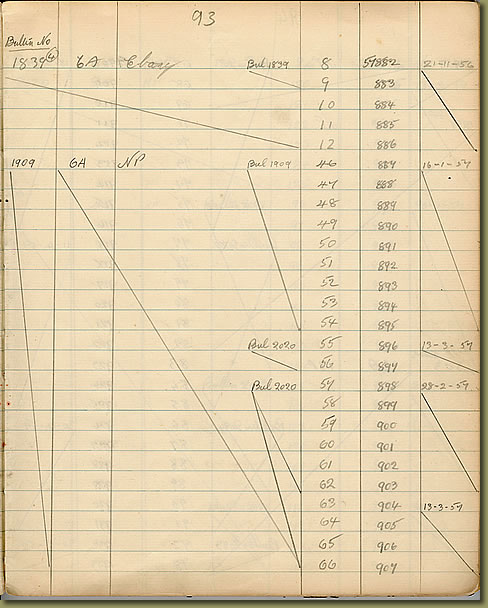 93
Bulltn No
1839 4 6A Ebay Bul 1839 8 57882 21-11-56
9 883
10 884
11 885
12 886
1909 6A NP Bul 1909 46 887 16-1-57
47 888
48 889
49 890
50 891
51 892
52 893
53 894
54 895
Bul 2020 55 896 13-3-57
56 897
Bul 2020 57 898 28-2-57
58 899
59 900
60 901
61 902
62 903
63 904 13-3-57
64 905
65 906
66 907